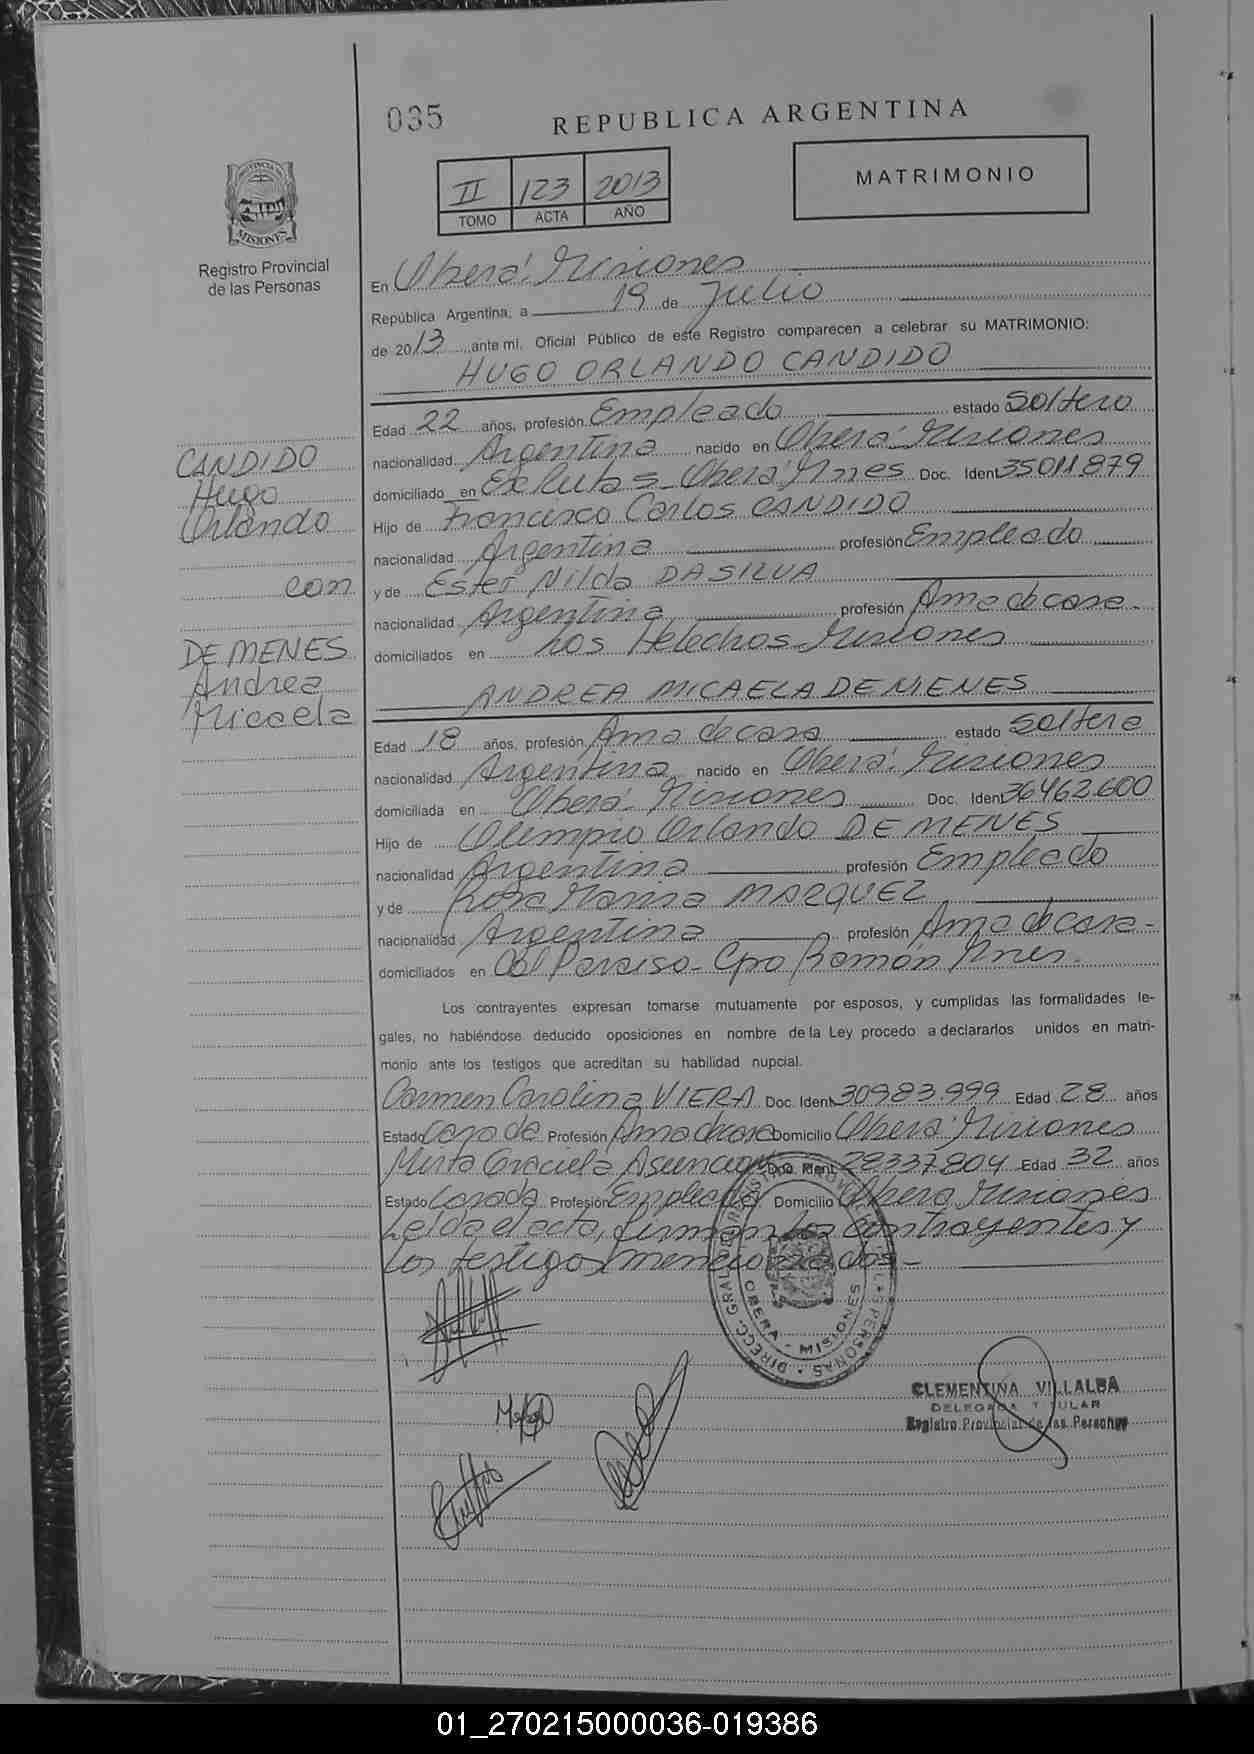 035
REPUBLICA ARGENTINA
II 123 2013
TOMO ACTA AÑO
MATRIMONIO
PROVINCIA
MISIONES
Registro Provincial
de las Personas
En Oberá. Misiones
República Argentina, a 19 de Julio
de 2013 ante mi. Oficial Público de este Registro comparecen a celebrar su MATRIMONIO:
HUGO ORLANDO CANDIDO
Edad 22 años, profesión Empleado estado Soltero
nacionalidad Argentina nacido en Oberá. Misiones
domiciliado en Oberá Mnes Doc. Ident 35011.879
Hijo de Francisco Carlos CANDIDO
nacionalidad Argentina profesión Empleado
y de Ester Nilda DASILVA
nacionalidad Argentina profesión Ama de casa-
domiciliados en Los Helechos. Misiones
CANDIDO
Hugo
Orlando
con
DE MENES
Andrea
Micaela
ANDREA MICAELA DE MENES
Edad 18 años, profesión Ama de casa estado Soltera
nacionalidad Argentina nacido en Oberá. Misiones
domiciliada en Oberá. Misiones Doc. Ident 36462.600
Hijo de Olimpio Orlando DE MENES
nacionalidad Argentina profesión Empleado
y de Rosa Marina MARQUEZ
nacionalidad Argentina profesión Ama de casa-
domiciliados en Col Paraiso- Cpo Ramón Mnes.
Los contrayentes expresan tomarse mutuamente por esposos, y cumplidas las formalidades le-
gales, no habiéndose deducido oposiciones en nombre de la Ley procedo a declararlos unidos en matri-
monio ante los testigos que acreditan su habilidad nupcial.
Carmen Carolina VIERA Doc. Ident 30983.999 Edad 28 años
Estado Casada Profesión Ama de casa Domicilio Oberá Misiones
Mirta Graciela Asuncion Doc. Ident. 28337804 Edad 32 años
Estado Casada Profesión Empleada Domicilio Oberá Misiones
Leida el acta, firman los contrayentes y
los testigos mencionados-
OBERA - MISIONES
CLEMENTINA VILLALBA
DELEGADA TITULAR
Registro Provincial de las Personas
01_270215000036-019386